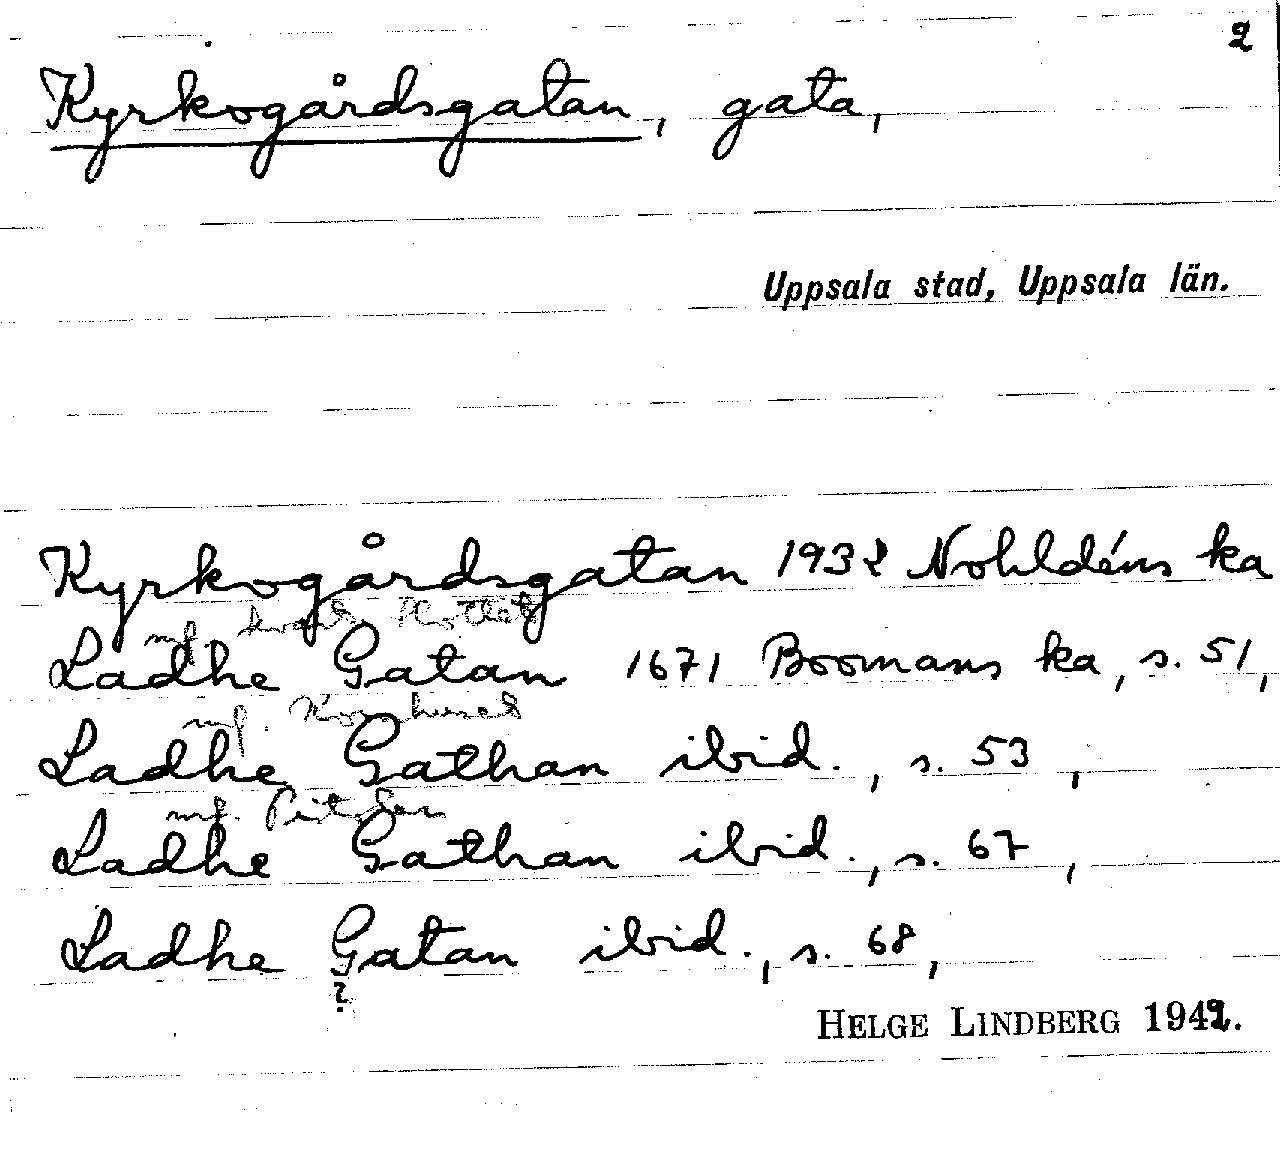 2
Kyrkogårdsgatan, gata,
Uppsala stad, Uppsala län.
Kyrkogårdsgatan 1932 Nohldéns ka
mf.
Ladhe Gatan 1671 Boomans ka, s. 51,
mf.
Ladhe Gathan ibid., s. 53,
mf.
Ladhe Gathan ibid., s. 67,
Ladhe Gatan ibid., s. 68,
?
HELGE LINDBERG 1942.